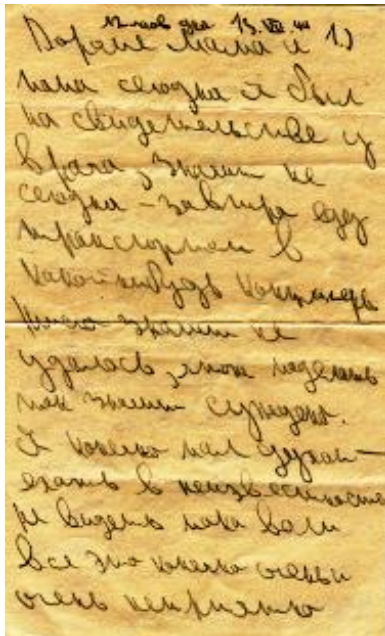 12 часов дня 13.VIII.44 1)
Дорогие мама и
папа сегодня я был
на свидетельстве у
врача, значит не
сегодня – завтра еду
транспортом в
какой нибудь концлагерь
Ничего значит не
удалось, что поделать
так значит суждено.
Я конечно пал духом –
ехать в неизвестность
не видеть пока вас
все это конечно очень
очень неприятно